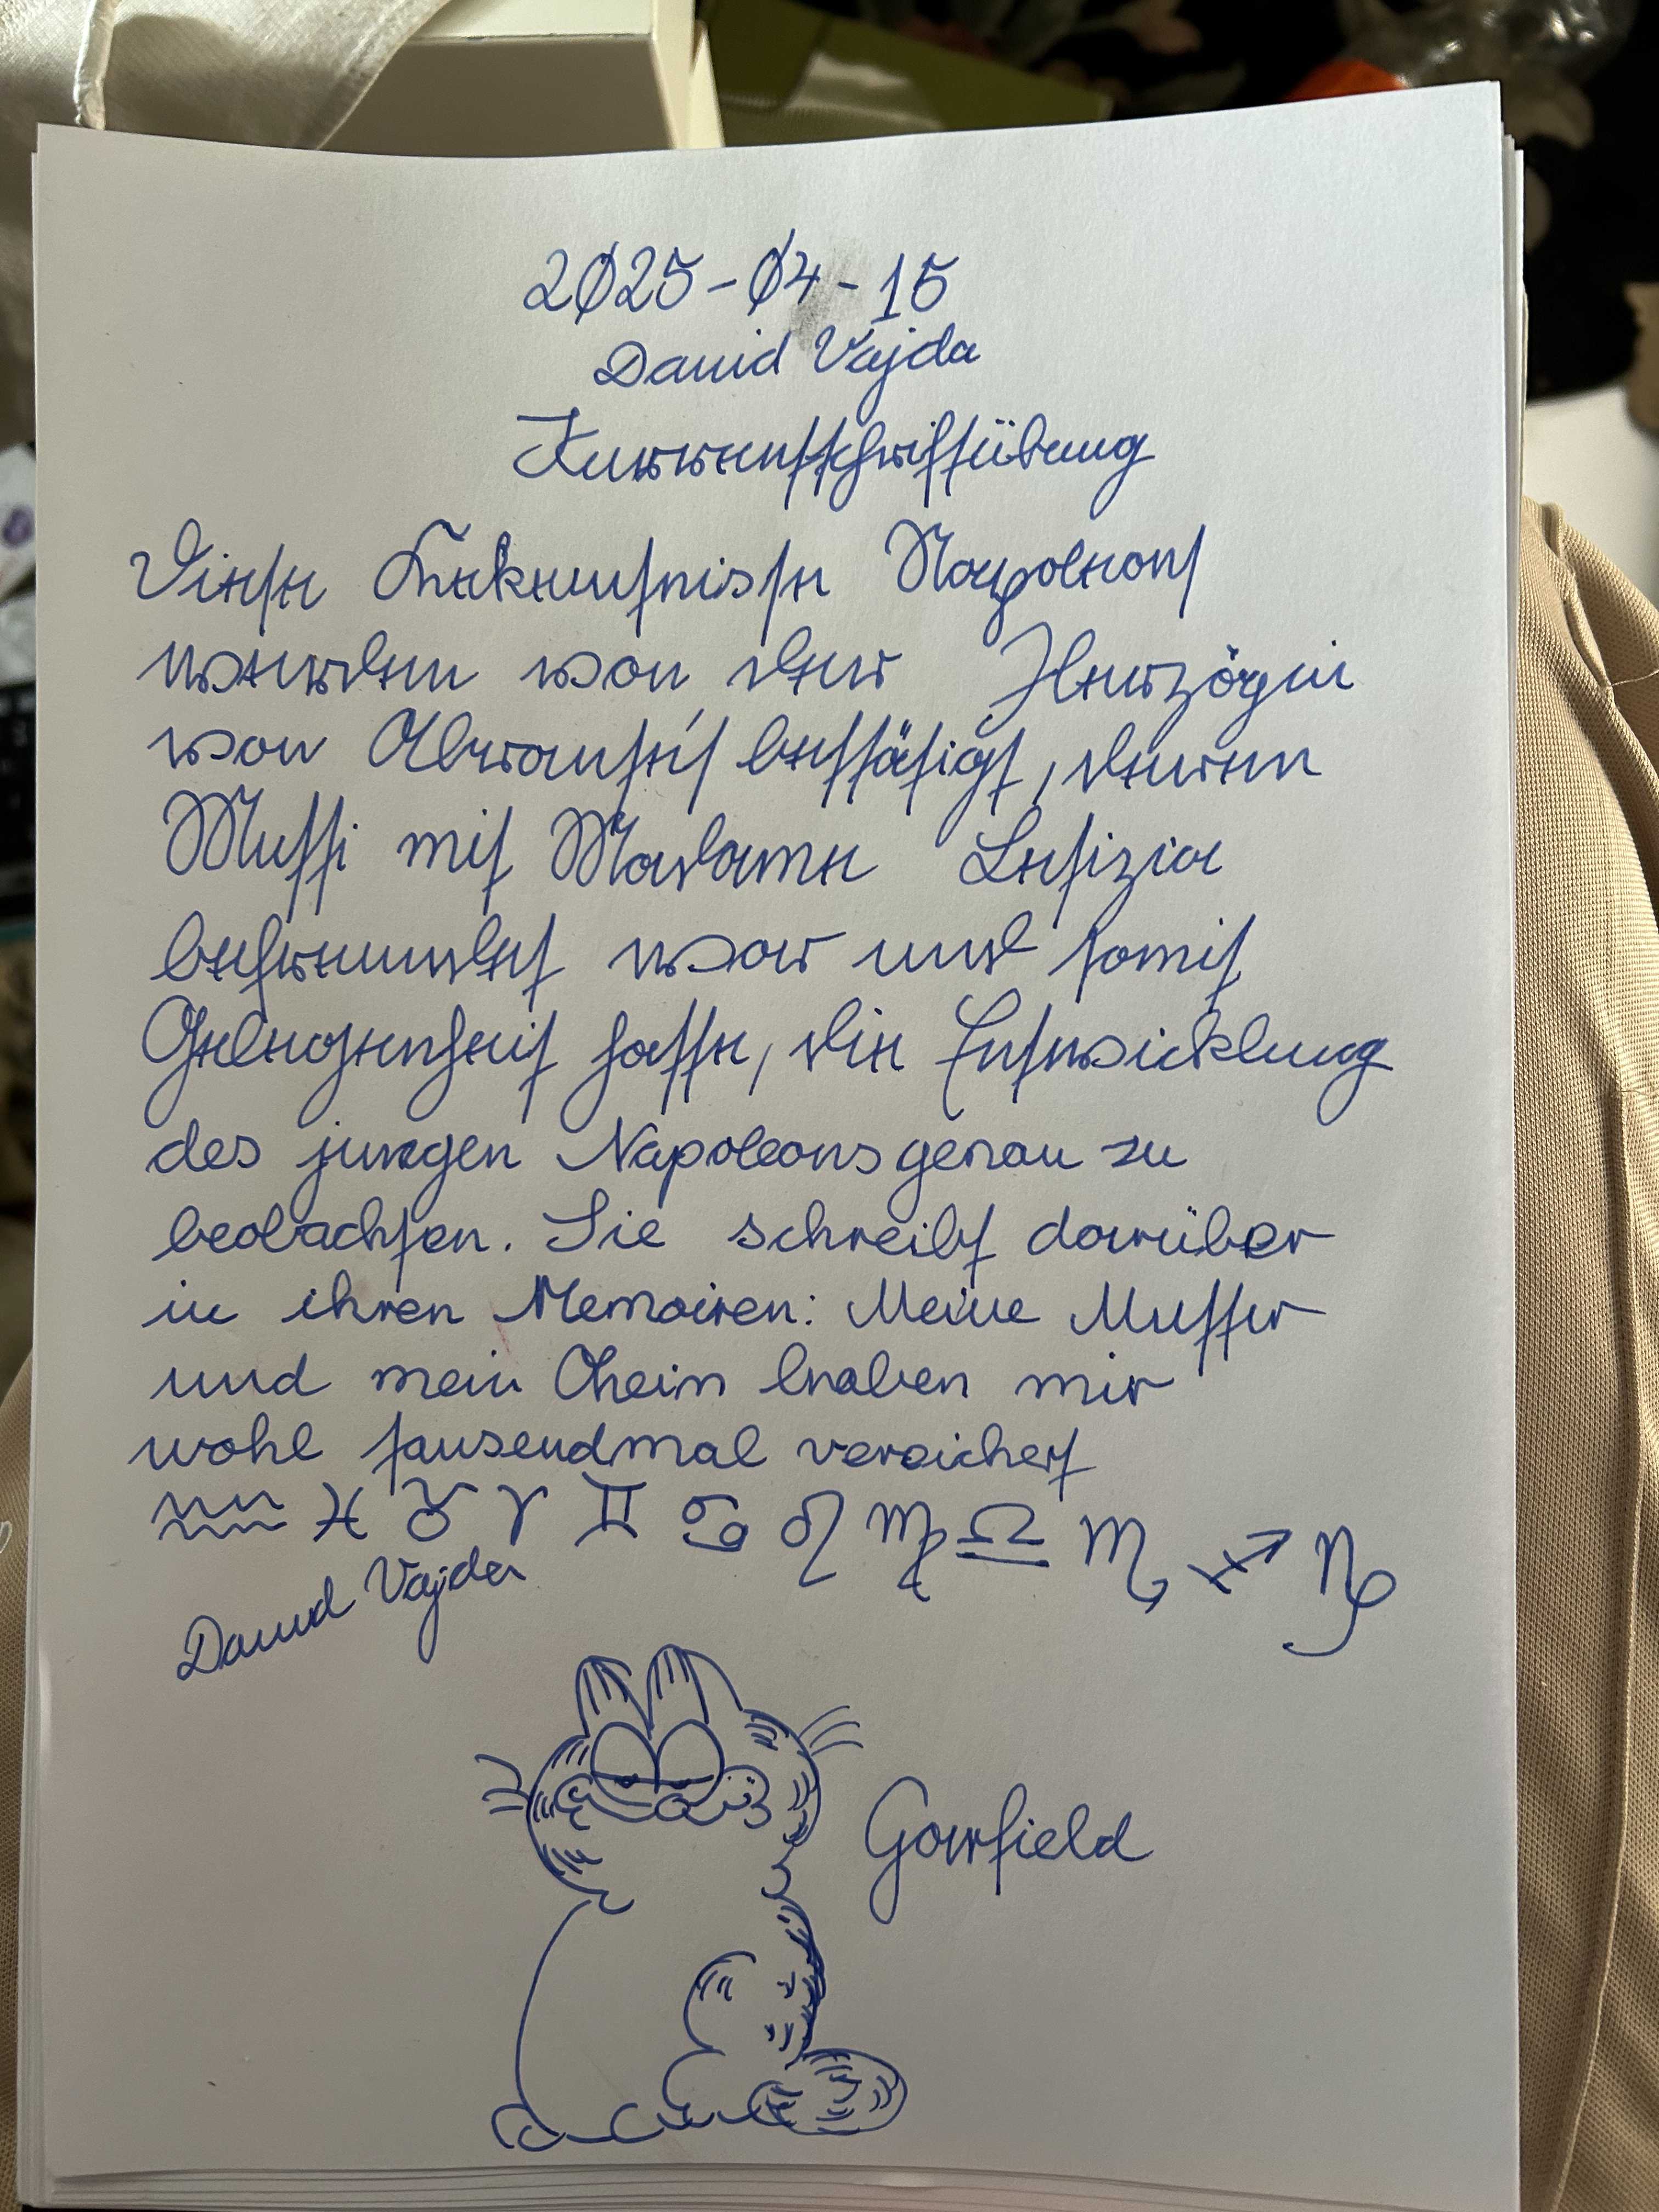 2025-04-15
David Vajda
Kurrentschriftübung
Diese Bekenntnisse Napoleons
werden von der Herzogin
von Abrantés bestätigt, deren
Mutti mit Madame Letizia
befreundet war und somit
Gelegenheit hatte, die Entwicklung
des jungen Napoleons genau zu
beobachten. Sie schreibt darüber
in ihren Memoiren: Meine Mutter
und mein Oheim haben mir
wohl tausendmal versichert
♒ ♓ ♉ ♈ ♊ ♋ ♌ ♍ ♎ ♏ ♐ ♑
David Vajda
Garfield